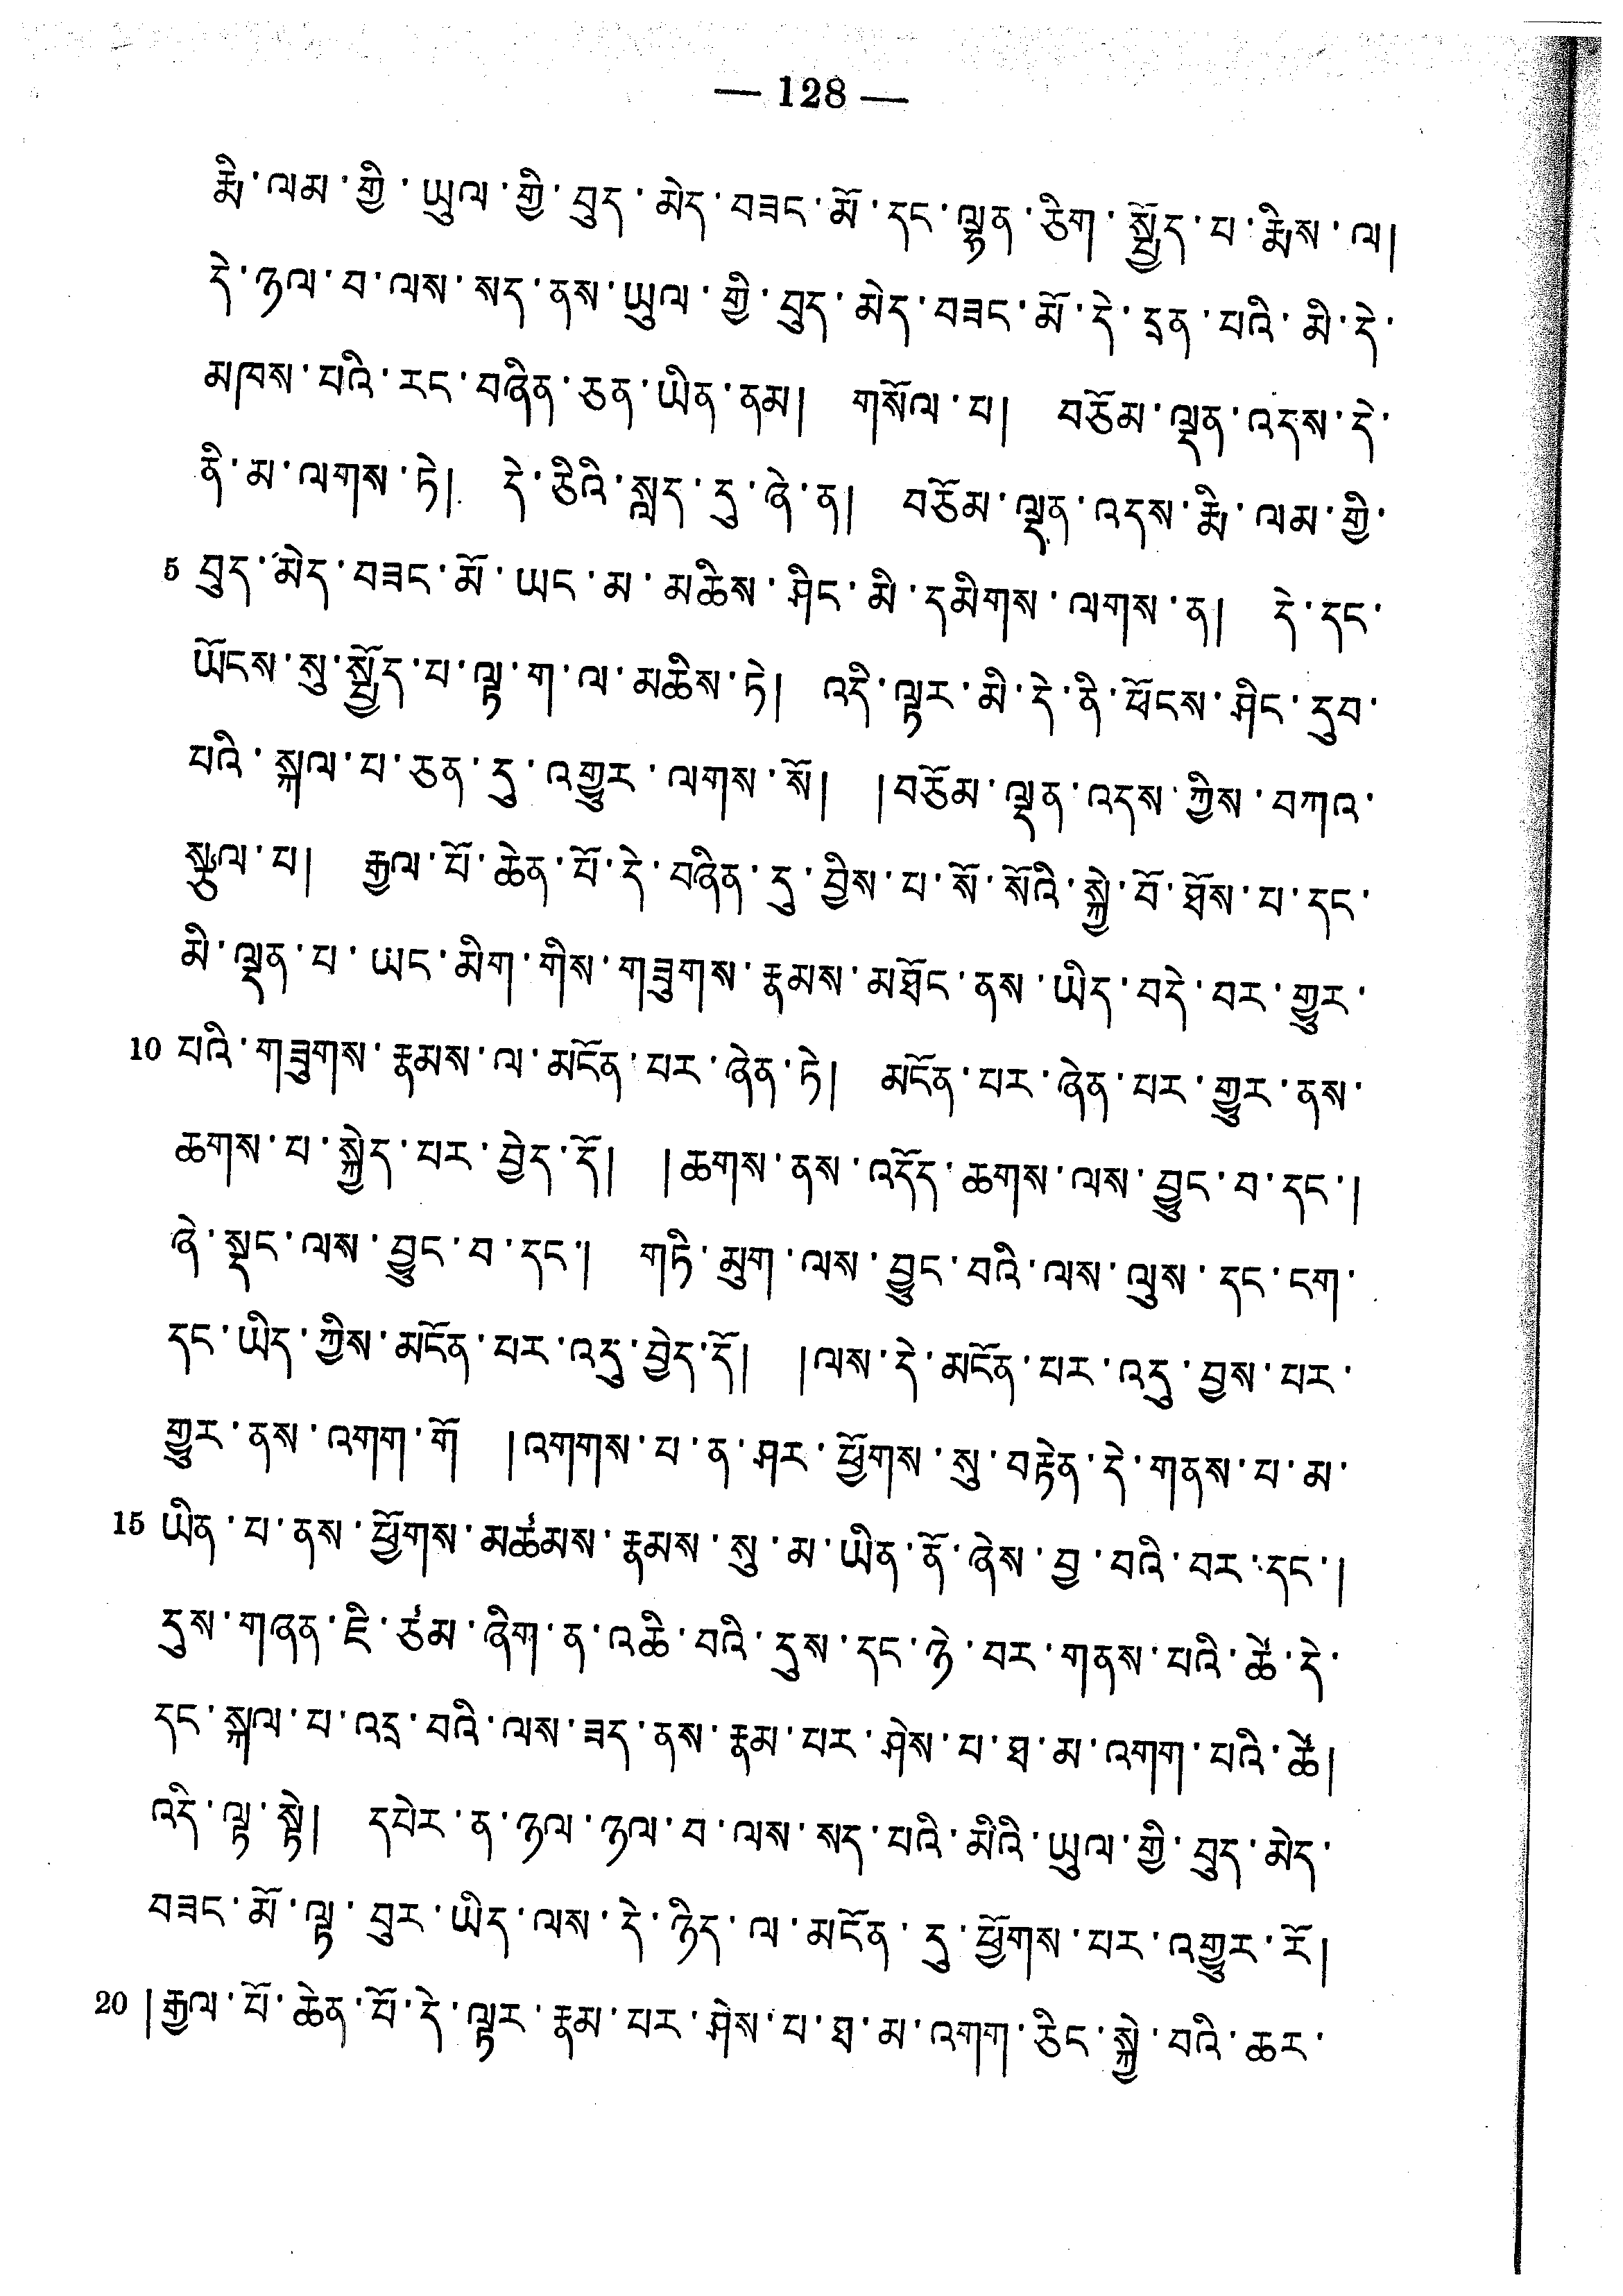 — 128 —
རྨི་ལམ་གྱི་ཡུལ་གྱི་བུད་མེད་བཟང་མོ་དང་ལྷན་ཅིག་སྤྱོད་པ་རྨིས་ལ།
དེ་ཉལ་བ་ལས་སད་ནས་ཡུལ་གྱི་བུད་མེད་བཟང་མོ་དེ་དྲན་པའི་མི་དེ་
མཁས་པའི་རང་བཞིན་ཅན་ཡིན་ནམ། གསོལ་པ། བཅོམ་ལྡན་འདས་དེ་
ནི་མ་ལགས་ཏེ། དེ་ཅིའི་སླད་དུ་ཞེ་ན། བཅོམ་ལྡན་འདས་རྨི་ལམ་གྱི་
5 བུད་མེད་བཟང་མོ་ཡང་མ་མཆིས་ཤིང་མི་དམིགས་ལགས་ན། དེ་དང་
ཡོངས་སུ་སྤྱོད་པ་ལྟ་ག་ལ་མཆིས་ཏེ། འདི་ལྟར་མི་དེ་ནི་ཕོངས་ཤིང་དུབ་
པའི་སྐལ་པ་ཅན་དུ་འགྱུར་ལགས་སོ། །བཅོམ་ལྡན་འདས་ཀྱིས་བཀའ་
སྩལ་པ། རྒྱལ་པོ་ཆེན་པོ་དེ་བཞིན་དུ་བྱིས་པ་སོ་སོའི་སྐྱེ་བོ་ཐོས་པ་དང་
མི་ལྡན་པ་ཡང་མིག་གིས་གཟུགས་རྣམས་མཐོང་ནས་ཡིད་བདེ་བར་གྱུར་
10 པའི་གཟུགས་རྣམས་ལ་མངོན་པར་ཞེན་ཏེ། མངོན་པར་ཞེན་པར་གྱུར་ནས་
ཆགས་པ་སྐྱེད་པར་བྱེད་དོ། །ཆགས་ནས་འདོད་ཆགས་ལས་བྱུང་བ་དང་།
ཞེ་སྡང་ལས་བྱུང་བ་དང་། གཏི་མུག་ལས་བྱུང་བའི་ལས་ལུས་དང་ངག་
དང་ཡིད་ཀྱིས་མངོན་པར་འདུ་བྱེད་དོ། །ལས་དེ་མངོན་པར་འདུ་བྱས་པར་
གྱུར་ནས་འགག་གོ །འགགས་པ་ན་ཤར་ཕྱོགས་སུ་བརྟེན་དེ་གནས་པ་མ་
15 ཡིན་པ་ནས་ཕྱོགས་མཚམས་རྣམས་སུ་མ་ཡིན་ནོ་ཞེས་བྱ་བའི་བར་དང་།
དུས་གཞན་ཇི་ཙམ་ཞིག་ན་འཆི་བའི་དུས་དང་ཉེ་བར་གནས་པའི་ཚེ་དེ་
དང་སྐལ་པ་འདྲ་བའི་ལས་ཟད་ནས་རྣམ་པར་ཤེས་པ་ཐ་མ་འགག་པའི་ཚེ།
འདི་ལྟ་སྟེ། དཔེར་ན་ཉལ་ཉལ་བ་ལས་སད་པའི་མིའི་ཡུལ་གྱི་བུད་མེད་
བཟང་མོ་ལྟ་བུར་ཡིད་ལས་དེ་ཉིད་ལ་མངོན་དུ་ཕྱོགས་པར་འགྱུར་རོ།
20 །རྒྱལ་པོ་ཆེན་པོ་དེ་ལྟར་རྣམ་པར་ཤེས་པ་ཐ་མ་འགག་ཅིང་སྐྱེ་བའི་ཆར་